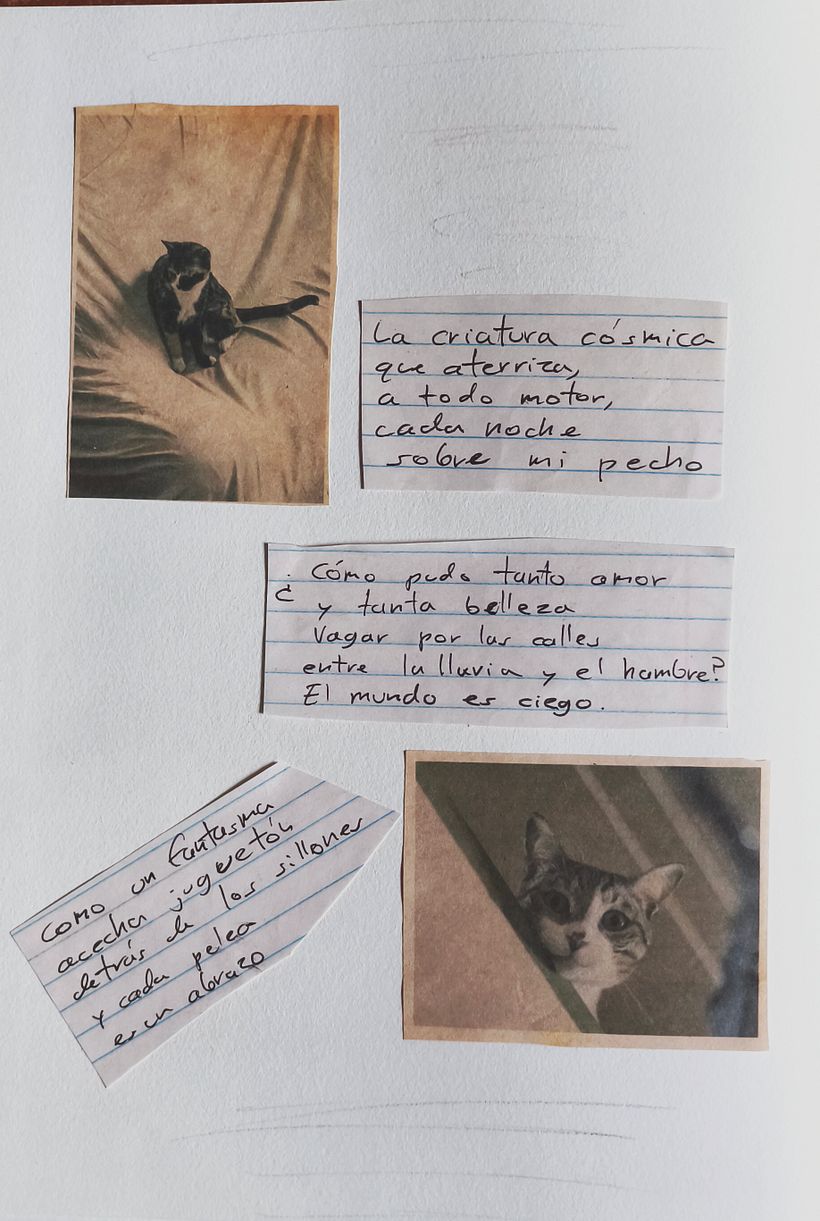 La criatura cósmica
que aterriza,
a todo motor,
cada noche
sobre mi pecho
¿Cómo pudo tanto amor
y tanta belleza
vagar por las calles
entre la lluvia y el hambre?
El mundo es ciego.
como un fantasma
acecha juguetón
detrás de los sillones
y cada pelea
es un abrazo